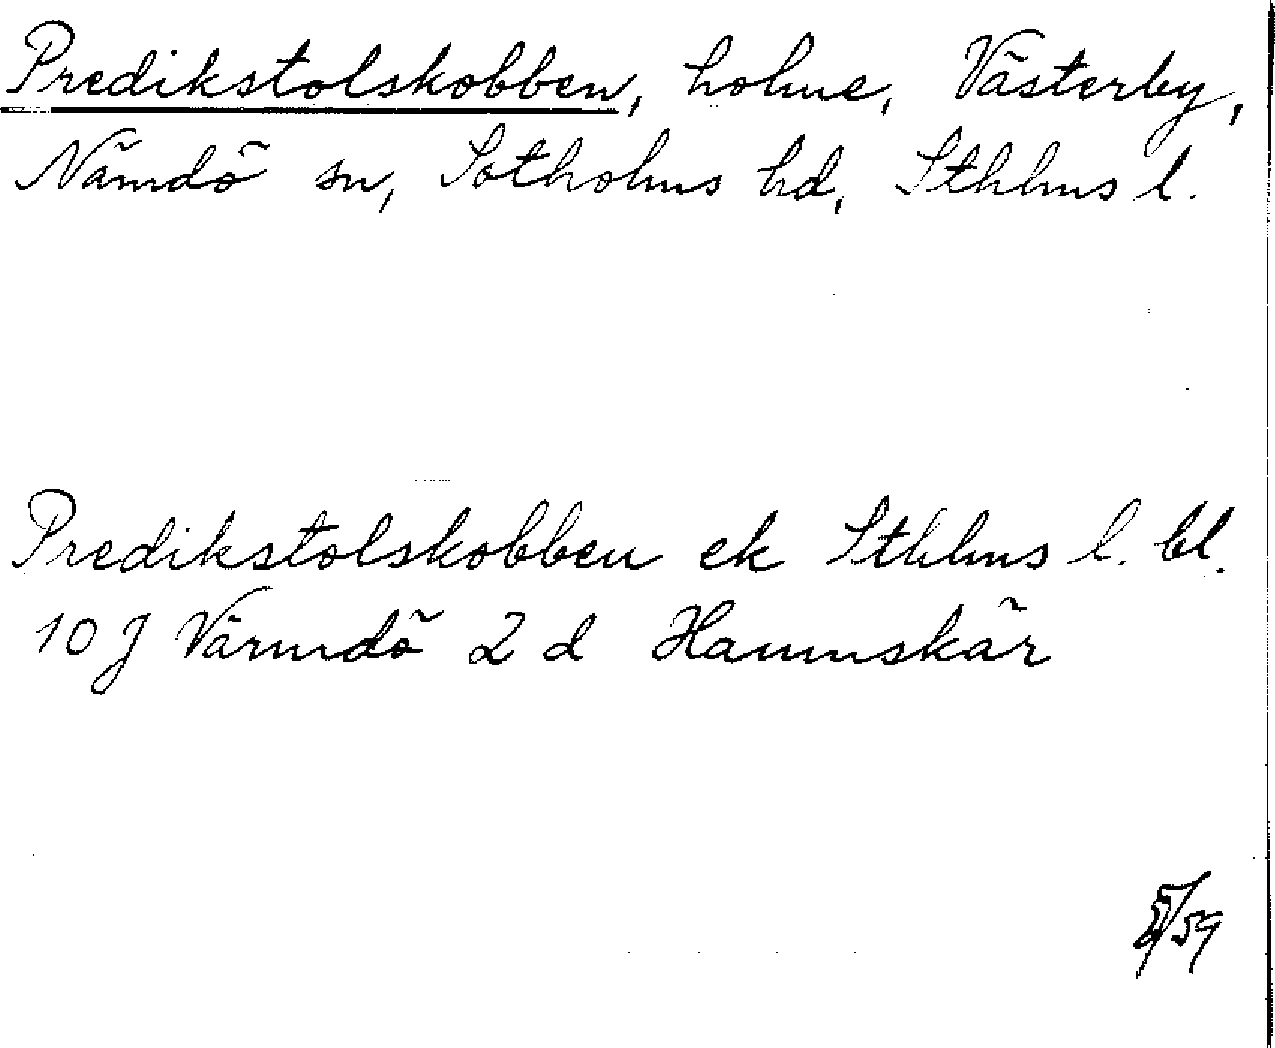 Predikstolskobben, holme, Västerby,
Nämdö sn, Sotholms hd, Sthlms l.
Predikstolskobben ek Sthlms l. bl.
10 J Värmdö 2 d Hammskär
/59